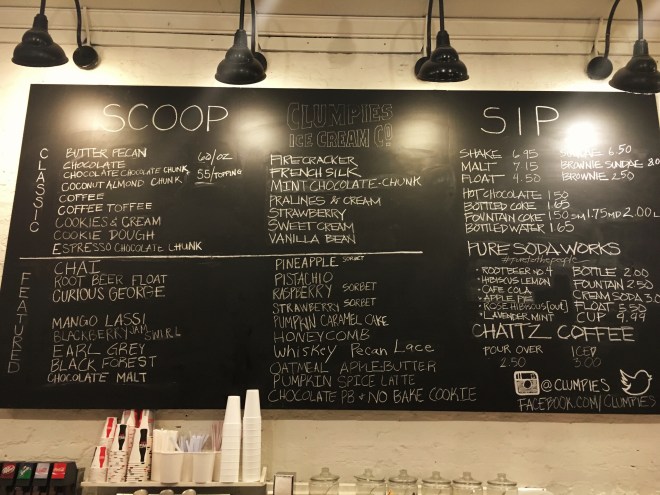 SCOOP
CLASSIC
BUTTER PECAN
CHOCOLATE
CHOCOLATE CHOCOLATE CHUNK
COCONUT ALMOND CHUNK
COFFEE
COFFEE TOFFEE
COOKIES & CREAM
COOKIE DOUGH
ESPRESSO CHOCOLATE CHUNK
/OZ
55/TOPPING
CLUMPIES
ICE CREAM CO
FIRECRACKER
FRENCH SILK
MINT CHOCOLATE-CHUNK
PRALINES & CREAM
STRAWBERRY
SWEET CREAM
VANILLA BEAN
FEATURED
CHAI
ROOT BEER FLOAT
CURIOUS GEORGE
MANGO LASSI
BLACKBERRY JAM SWIRL
EARL GREY
BLACK FOREST
CHOCOLATE MALT
PINEAPPLE SORBET
PISTACHIO
RASPBERRY SORBET
STRAWBERRY SORBET
PUMPKIN CARAMEL CAKE
HONEYCOMB
Whiskey Pecan Lace
OATMEAL APPLE-BUTTER
PUMPKIN SPICE LATTE
CHOCOLATE PB & NO BAKE COOKIE
SIP
SHAKE 6.95
MALT 7.15
FLOAT 4.50
6.50
BROWNIE SUNDAE 8.0
BROWNIE 2.50
HOT CHOCOLATE 1.50
BOTTLED COKE 1.65
FOUNTAIN COKE 1.50 SM 1.75 MD 2.00 L
BOTTLED WATER 1.65
PURE SODAWORKS
#puretothepeople
• ROOT BEER NO. 4
• HIBISCUS LEMON
• CAFE COLA
• APPLE PIE
• ROSE HIBISCUS [out]
• LAVENDER MINT
BOTTLE 2.00
FOUNTAIN 2.50
CREAM SODA 3.0
FLOAT 5.50
CUP 1.49
CHATTZ COFFEE
POUR OVER
2.50
ICED
3.00
@CLUMPIES
FACEBOOK.COM/CLUMPIES